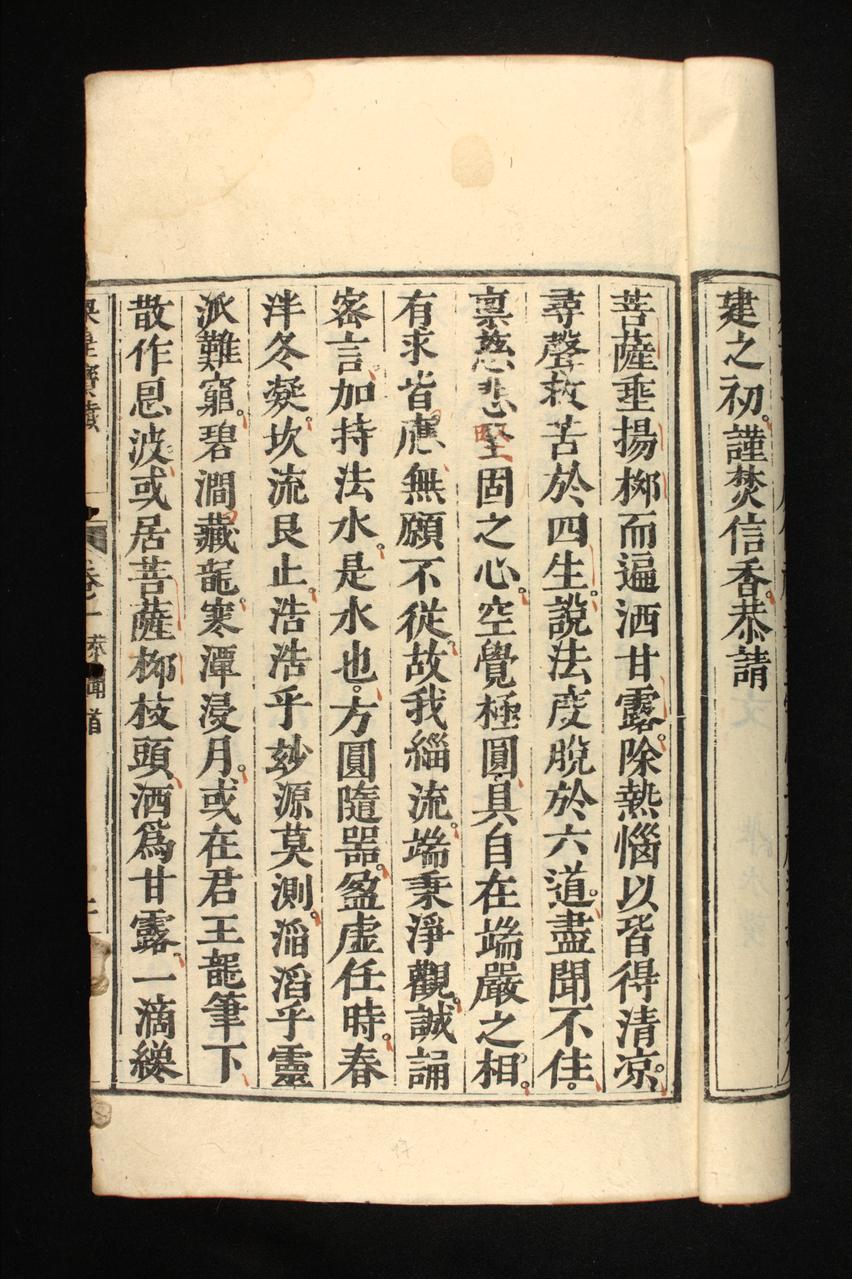 建之初。謹焚信香。恭請
菩薩垂揚桞而遍洒甘露。除熱惱以皆得清凉。
尋聲救苦於四生。說法度脫於六道。盡聞不住。
禀慈悲堅固之心。空覺極圓。具自在端嚴之相。
有求皆應。無願不從。故我緇流。端秉淨觀。誠誦
密言。加持法水。是水也。方圓隨器。盈虚任時。春
泮冬凝。坎流艮止。浩浩乎玅源莫測。滔滔乎靈
派難窮。碧澗藏龍。寒潭浸月。或在君王龍筆下
散作恩波。或居菩薩桞枝頭。洒爲甘露。一滴纔
卷一